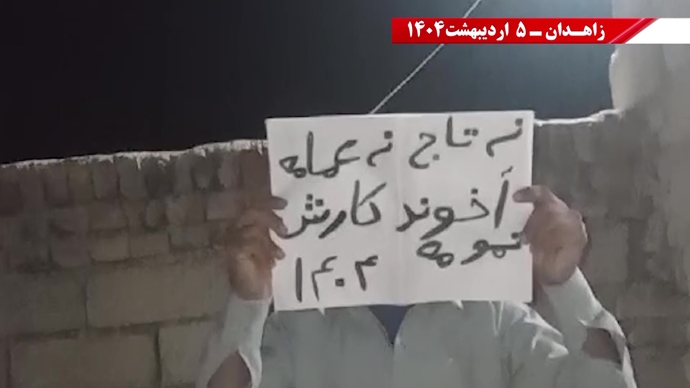 زاهـدان ـ ۵ اردیبهشت۱۴۰۴
نه تاج نه عمامه
آخوند کارش
تمومه
۱۴۰۴